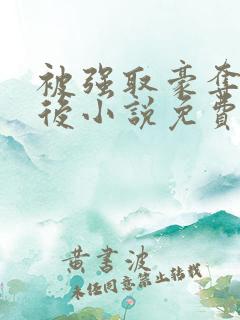 被强取豪夺
後小说免費
黄書波
未经同意禁止转载